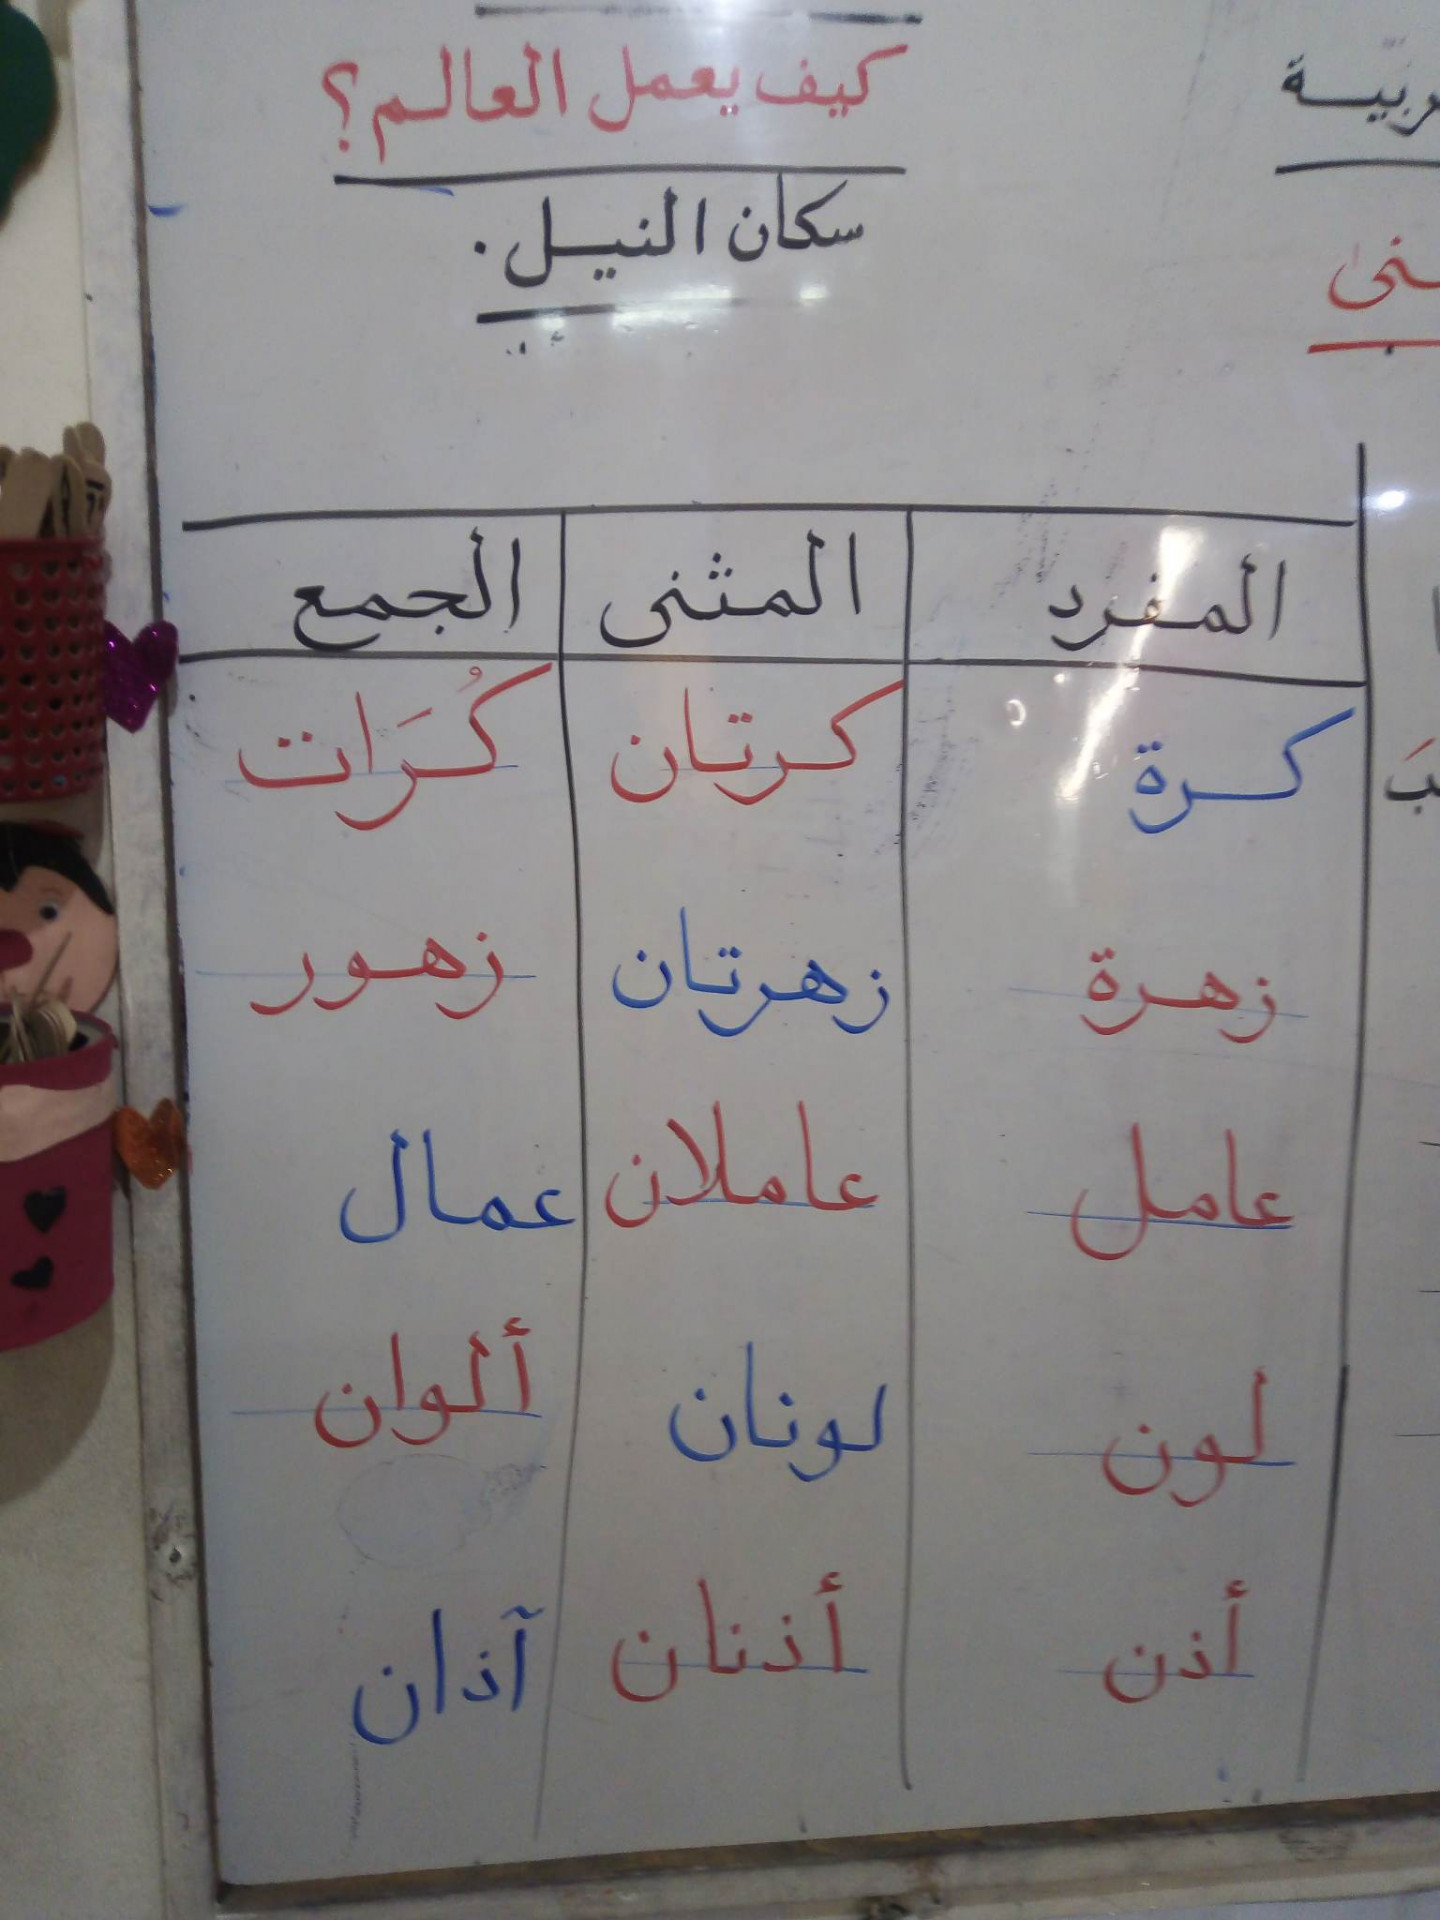 كيف يعمل العالم؟
سكان النيل.
المفرد المثنى الجمع
كرة كرتان كُرَات
زهرة زهرتان زهور
عامل عاملان عمال
لون لونان ألوان
أذن أذنان آذان